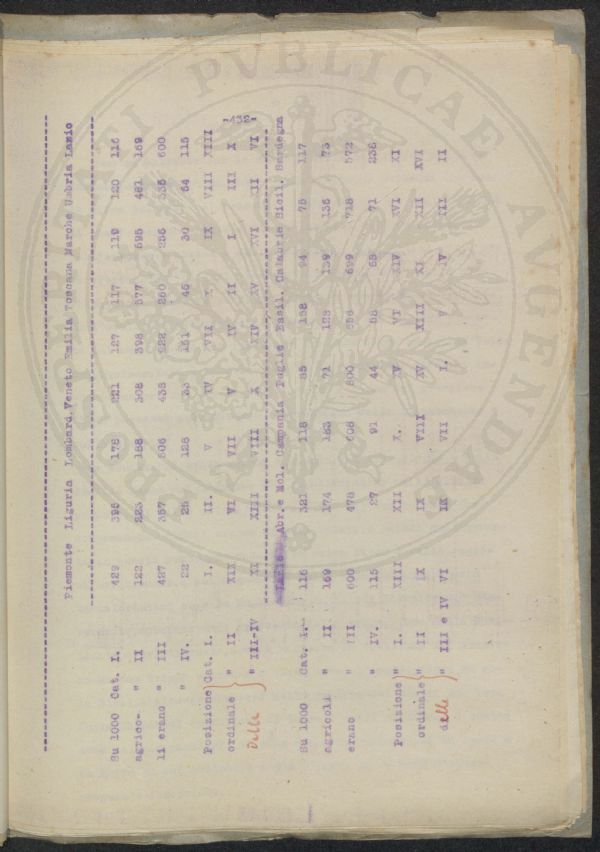 -435-
Piemonte Liguria Lombard. Veneto Emilia Toscana Marche Umbria Lazio
Su 1000 Cat. I. 429 395 178 221 127 117 119 120 116
agrico- " II 122 223 188 308 577 595 481 169
li erano " III 427 357 506 438 222 260 256 335 600
" IV. 22 25 128 33 46 30 64 115
Posizione Cat. I. I. II. V IV VII X IX VIII XIII
ordinale " II XIX VI VII V IV II I III X
Delle " III-IV XI XIII VIII X XIV XV XVI XII VI
Lazio Abr. e Mol. Campania Puglie Basil. Calabria Sicil. Sardegna
Su 1000 Cat. I. 116 321 118 85 158 94 75 117
agricoli " II 169 174 183 71 128 136 73
erano " III 600 478 608 800 699 718 572
" IV. 115 27 91 44 58 71 238
Posizione " I. XIII XII X. IV VI XIV XVI XI
ordinale " II IX IX VIII XV XIII XI XII XVI
delle " III e IV VI IX VII I. V IV III II
PVBLICAE AVGENDAE